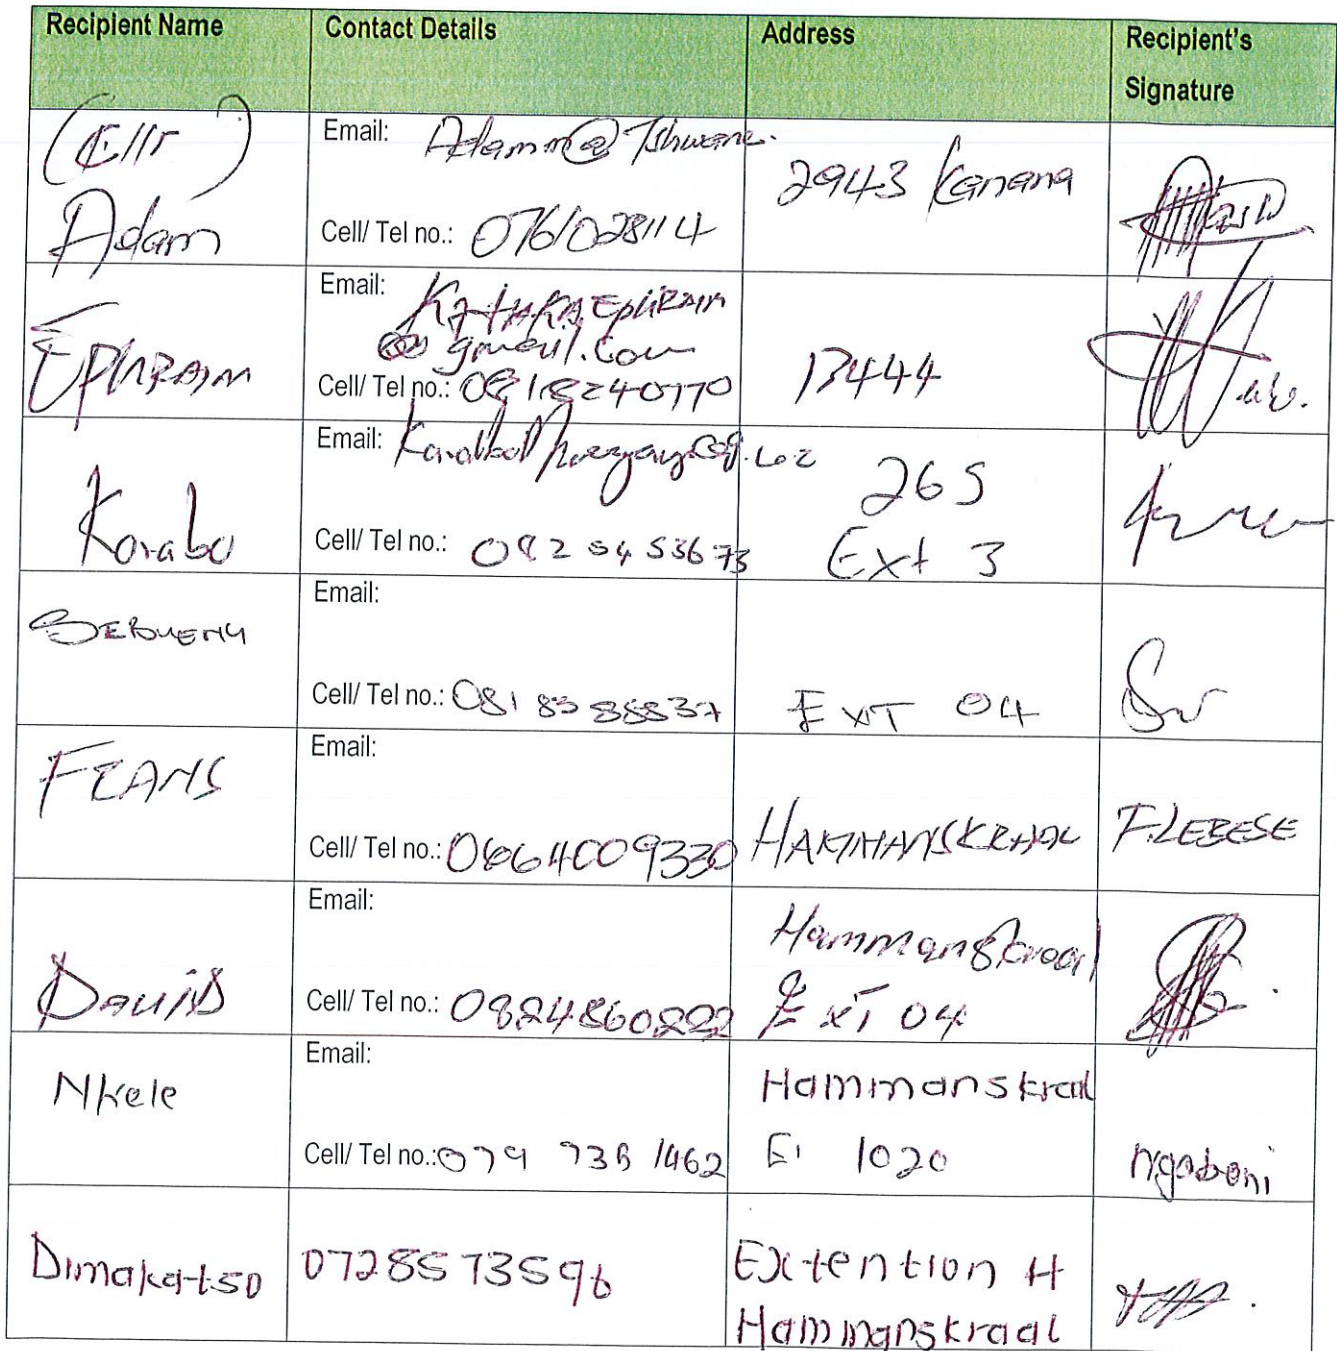 Recipient Name Contact Details Address Recipient's
Signature
(Cllr)
Adam
Email: Adamm@Tshwane.
Cell/ Tel no.: 0761028114
2943 Kanana
EPHRAIM
Email:
@gmail.com
Cell/ Tel no.: 0818240770
13444
Korabo
Email:
Cell/ Tel no.:
265
Ext 3
Email:
Cell/ Tel no.:
EXT 04
FRANS
Email:
Cell/ Tel no.: 0664009330
HAMMANSKRAAL
F.LEBESE
DAViD
Email:
Cell/ Tel no.: 0824860222
Hammanskraal
EXT 04
Nkele
Email:
Cell/ Tel no.: 079 738 1462
Hammanskraal
E1 1020
ngoboni
Dimakatso
0728573596
Extention H
Hammanskraal